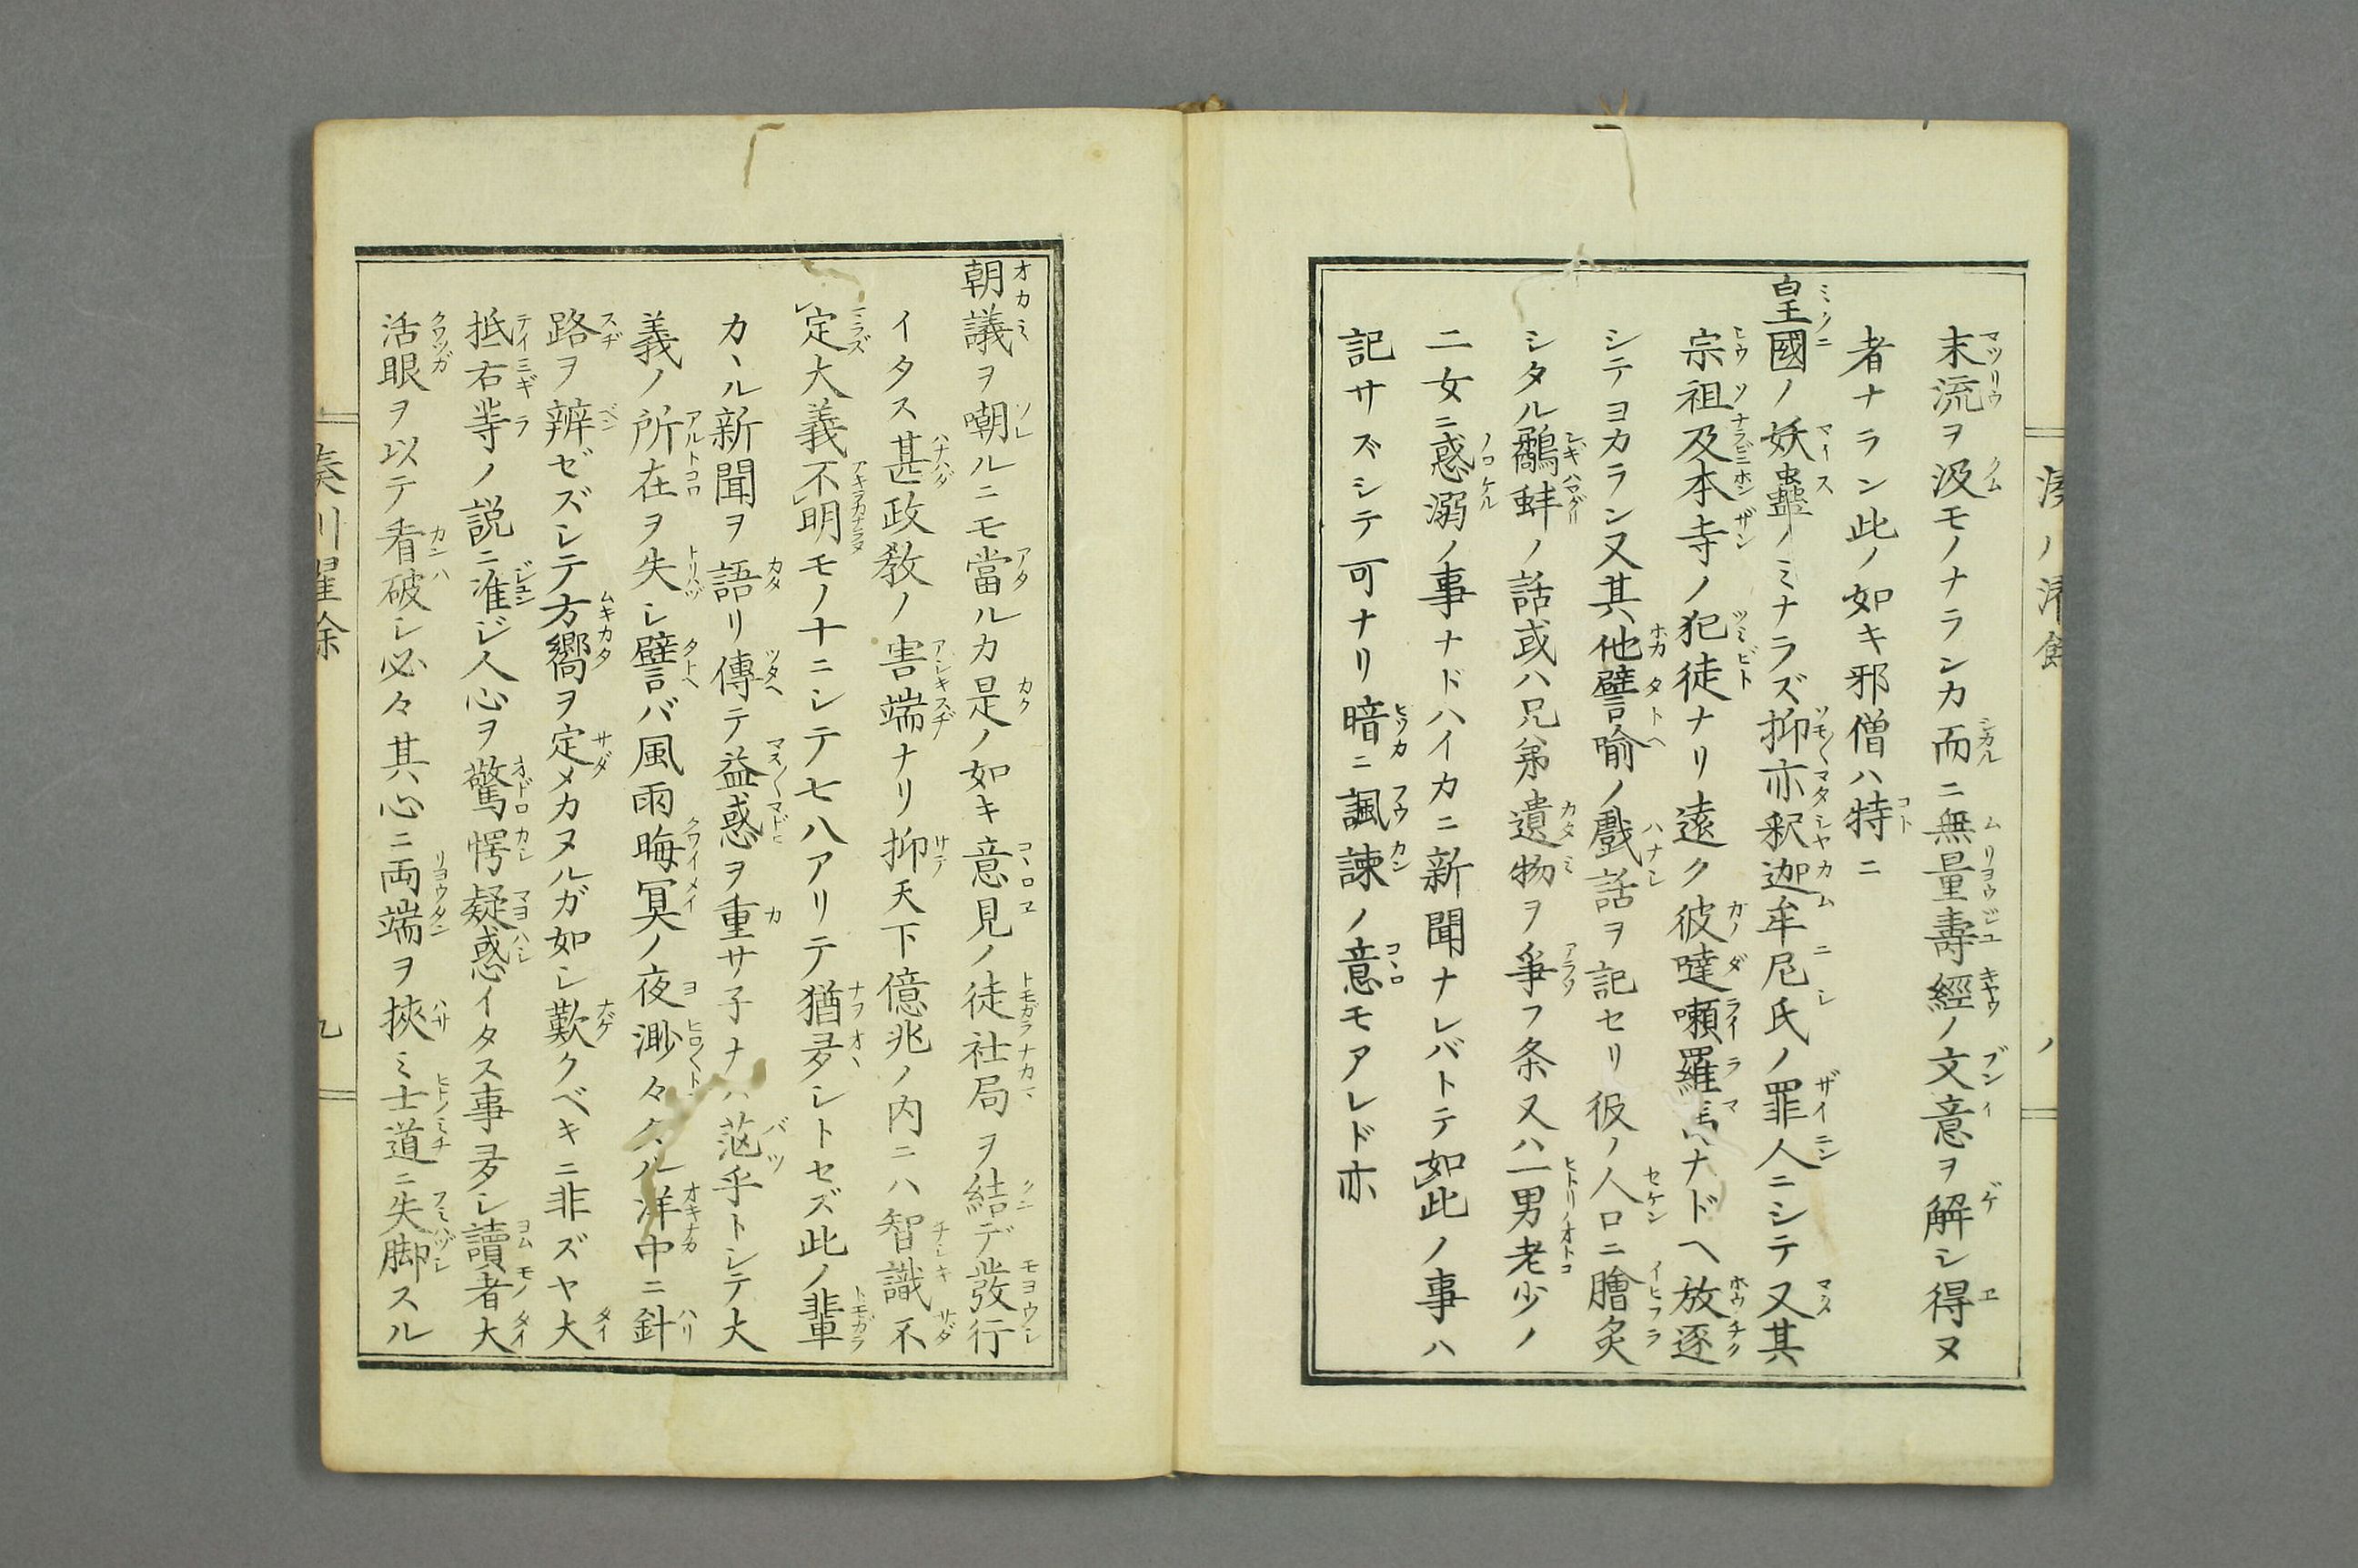 末流ヲ汲モノナランカ而ニ無量壽經ノ文意ヲ解シ得ヌ
者ナラン此ノ如キ邪僧ハ特ニ
皇國ノ妖蠱ノミナラズ抑亦釈迦牟尼氏ノ罪人ニシテ又其
宗祖及本寺ノ犯徒ナリ遠ク彼噠嚹羅馬ナドヘ放逐
シテヨカラン又其他譬喻ノ戲話ヲ記セリ彼ノ人口ニ膾炙
シタル鷸蚌ノ話或ハ兄弟遺物ヲ爭フ条又ハ一男老少ノ
二女ニ惑溺ノ事ナドハイカニ新聞ナレバトテ如此ノ事ハ
記サズシテ可ナリ暗ニ諷諫ノ意モアレド亦
朝議ヲ嘲ルニモ當ルカ是ノ如キ意見ノ徒社局ヲ結デ發行
イタス甚政教ノ害端ナリ抑天下億兆ノ内ニハ智識不
定大義不明モノ十ニシテ七八アリテ猶夛シトセズ此ノ輩
カヽル新聞ヲ語リ傳テ益惑ヲ重サ子ナハ茫乎トシテ大
義ノ所在ヲ失シ譬バ風雨晦冥ノ夜渺々タル洋中ニ針
路ヲ辨ゼズシテ方嚮ヲ定メカヌルガ如シ歎クベキニ非ズヤ大
抵右等ノ説ニ准ジ人心ヲ驚愕疑惑イタス事夛シ讀者大
活眼ヲ以テ看破シ必々其心ニ両端ヲ挾ミ士道ニ失脚スル